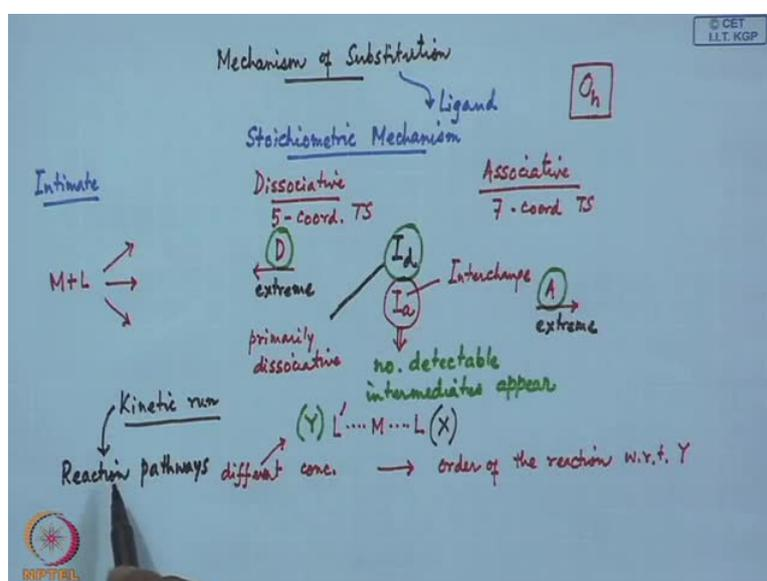 © CET
I.I.T. KGP
Mechanism of Substitution
Ligand
Oh
Stoichiometric Mechanism
Intimate
Dissociative
5-coord. TS
Associative
7-coord TS
M+L
D
extreme
Id
Ia
Interchange
A
extreme
primarily
dissociative
no. detectable
intermediates appear
Kinetic run
(Y) L' .... M .... L (X)
Reaction pathways different conc. → order of the reaction w.r.t. Y
NPTEL